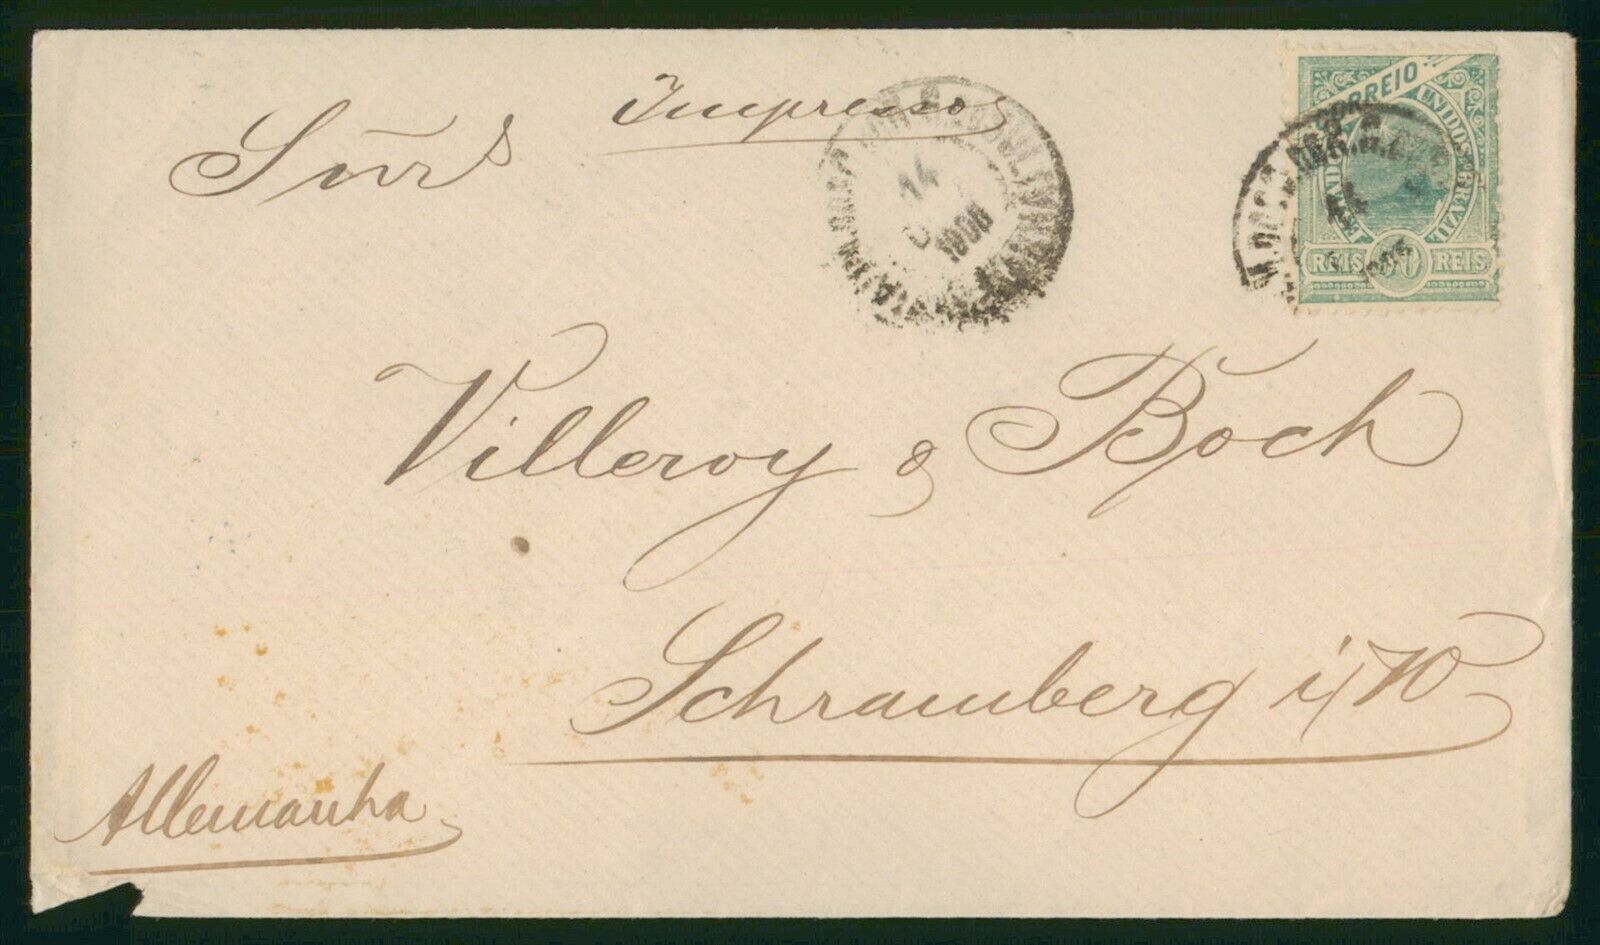 Impressos
Snr̃s
14
1906
CORREIO
ESTADOS UNIDOS DO BRAZIL
REIS 50 REIS
Villeroy & Boch
Schramberg i/W.
Allemanha